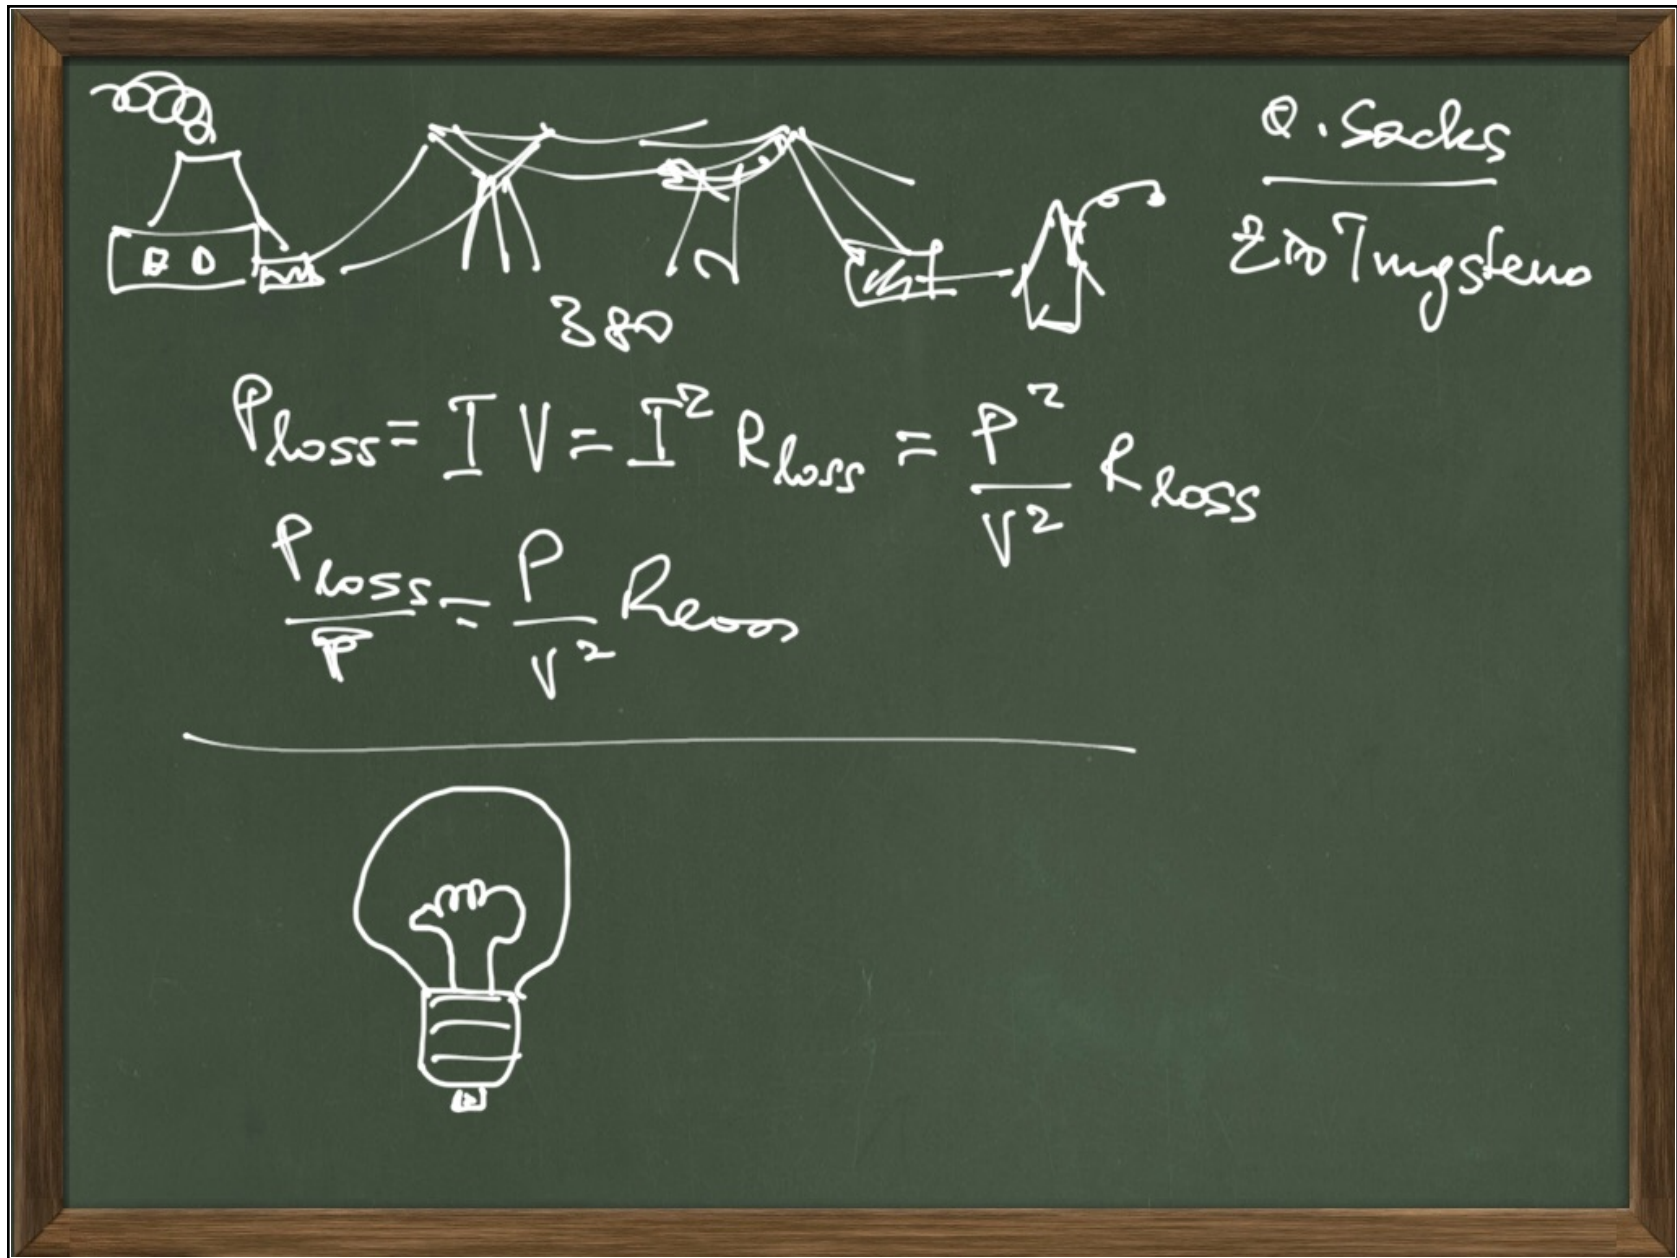 O. Sacks
Zio Tungsteno
380
P_loss = I V = I² R_loss = P²/V² R_loss
P_loss/P = P/V² R_loss